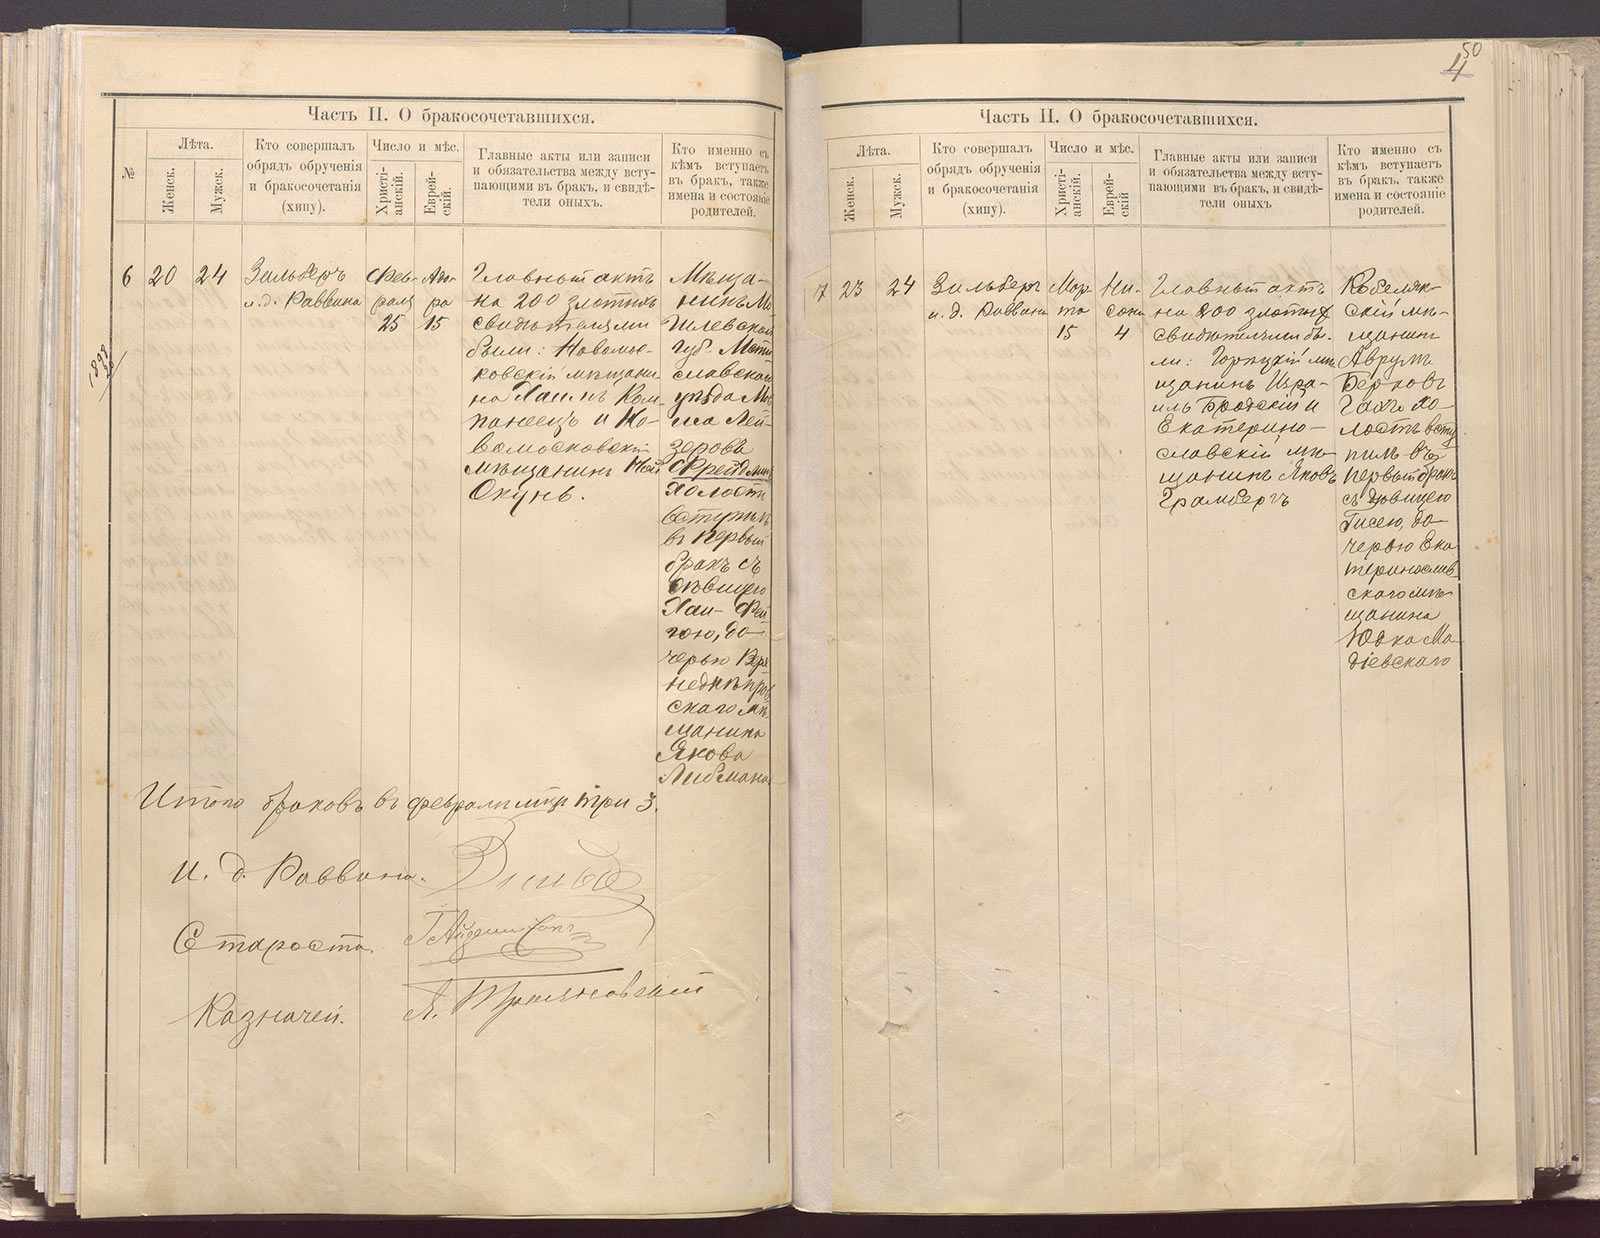 50
4
Часть II. О бракосочетавшихся.
№
Лѣта.
Женск.
Мужск.
Кто совершалъ
обрядъ обрученія
и бракосочетанія
(хипу).
Число и мѣс.
Христі-
анскій.
Еврей-
скій.
Главные акты или записи
и обязательства между всту-
пающими въ бракъ, и свидѣ-
тели оныхъ.
Кто именно съ
кѣмъ вступаетъ
въ бракъ, также
имена и состояніе
родителей.
1898
6
20
24
Зильберъ
и.д. Раввина
Фев-
раля
25
Ада-
ра
15
Главный актъ
на 200 злотыхъ
свидѣтелями
были: Новомос-
ковскій мѣщани-
нъ Хаимъ Ком-
панеецъ и Но-
вомосковскій
мѣщанинъ
Окунь.
Мѣща-
нинъ Мо-
гилевской
губ. Мсти
славскаго
уѣзда
Лей-
зеровъ
Фрейдлинъ
холостъ
вступилъ
въ первый
бракъ съ
дѣвицею
Хаи-Фей-
гою, до-
черью Верх
недѣпров
скаго мѣ
щанина
Якова
Либмана
Итого браковъ въ февралѣ мцѣ три 3.
И. д. Раввина.
Староста.
Казначей.
Часть II. О бракосочетавшихся.
Лѣта.
Женск.
Мужск.
Кто совершалъ
обрядъ обрученія
и бракосочетанія
(хипу).
Число и мѣс.
Христі-
анскій.
Еврей-
скій
Главные акты или записи
и обязательства между всту-
пающими въ бракъ, и свидѣ-
тели оныхъ
Кто именно съ
кѣмъ вступаетъ
въ бракъ, также
имена и состояніе
родителей.
7
23
24
Зильберъ
и. д. Раввина
Мар
та
15
Ни-
сона
4
Главный актъ
на 200 злотыхъ
свидѣтелями бы-
ли: мѣ
щанинъ Изра-
иль Бродскій и
Екатерино-
славскій мѣ-
щанинъ Яковъ
Грамбергъ
Кобеляк-
скій мѣ-
щанинъ
Аврумъ
Берковъ
Гахъ хо-
лостъ всту
пилъ въ
первый бракъ
съ дѣвицею
Гисею, до-
черью Ека
теринослав
скаго мѣ-
щанина
Юдка Ма
діевскаго